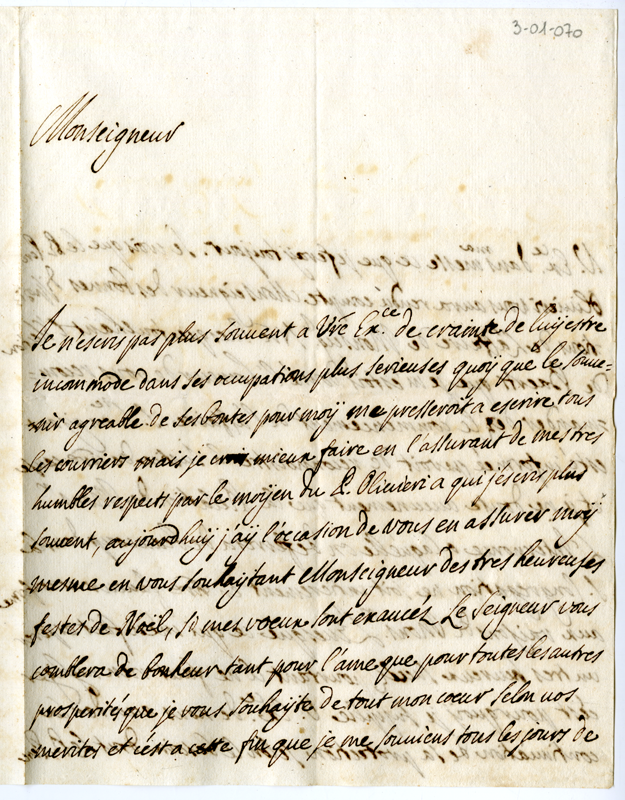 3-01-070
Monseigneur
Je n'escris pas plus souvent a Vre Exce. de crainte de luy estre
incommode dans ses occupations plus serieuses quoy que le souve=
nir agreable de ses bontes pour moy me presseroit a escrire tous
les courriers mais je crois mieux faire en l'assurant de mes tres
humbles respects par le moyen du P. Olivieri a qui j'escris plus
souvent, aujourdhuy j'ay l'occasion de vous en assurer moy
mesme en vous souhaytant Monseigneur des tres heureuses
festes de Noël, si mes voeux sont exaucéz Le Seigneur vous
comblera de bonheur tant pour l'ame que pour toutes les autres
prosperité que je vous souhayte de tout mon coeur selon vos
merites et c'est a cette fin que je me souviens tous les jours de